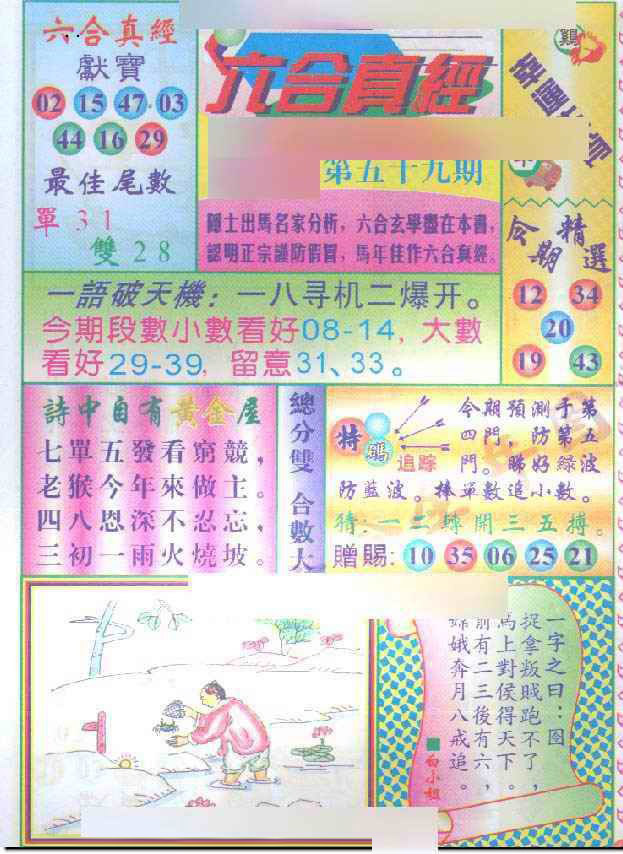 六合真經
獻寶
02 15 47 03
44 16 29
最佳尾數
單 31
雙 28
六合真經
第五十九期
隱士出馬名家分析，六合玄學盡在本書，
認明正宗謹防假冒，馬年佳作六合真經。
鷄
今期精選
12 34
20
19 43
一語破天機：一八寻机二爆开。
今期段數小數看好08-14，大數
看好29-39，留意31、33。
詩中自有黃金屋
七單五發看窮競，
老猴今年來做主。
四八恩深不忍忘，
三初一雨火燒坡。
總分雙 合數大
特碼
追踪
今期預測于第
四門，防第五
門。睇好綠波
防藍波。捧單數追小數。
猜：一二球開三五搏。
贈賜：10 35 06 25 21
一字之曰：图
捉拿叛賊跑不了，
馬上對侯得天下。
前有二三後有六，
嫦娥奔月八戒追。
白小姐